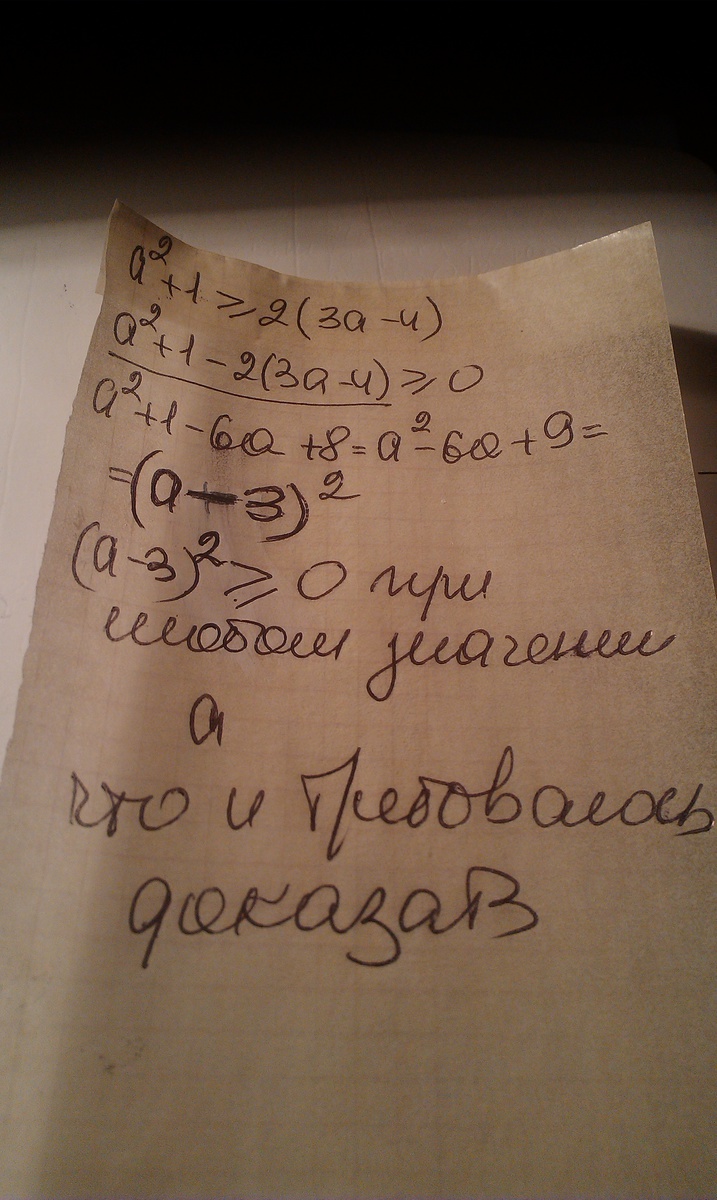 a²+1 ⩾ 2(3a-4)
a²+1-2(3a-4) ⩾ 0
a²+1-6a+8=a²-6a+9=
=(a-3)²
(a-3)² ⩾ 0 при
любом значении
a
что и требовалось
доказать